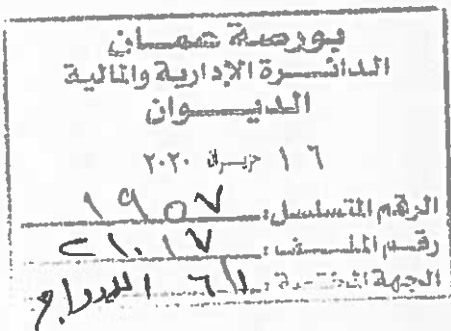 بورصة عمان
الدائرة الإدارية والمالية
الديوان
١٦ حزيران ٢٠٢٠
الرقم المتسلسل: ١٩٥٧
رقم الملف:
الجهة المختصة: